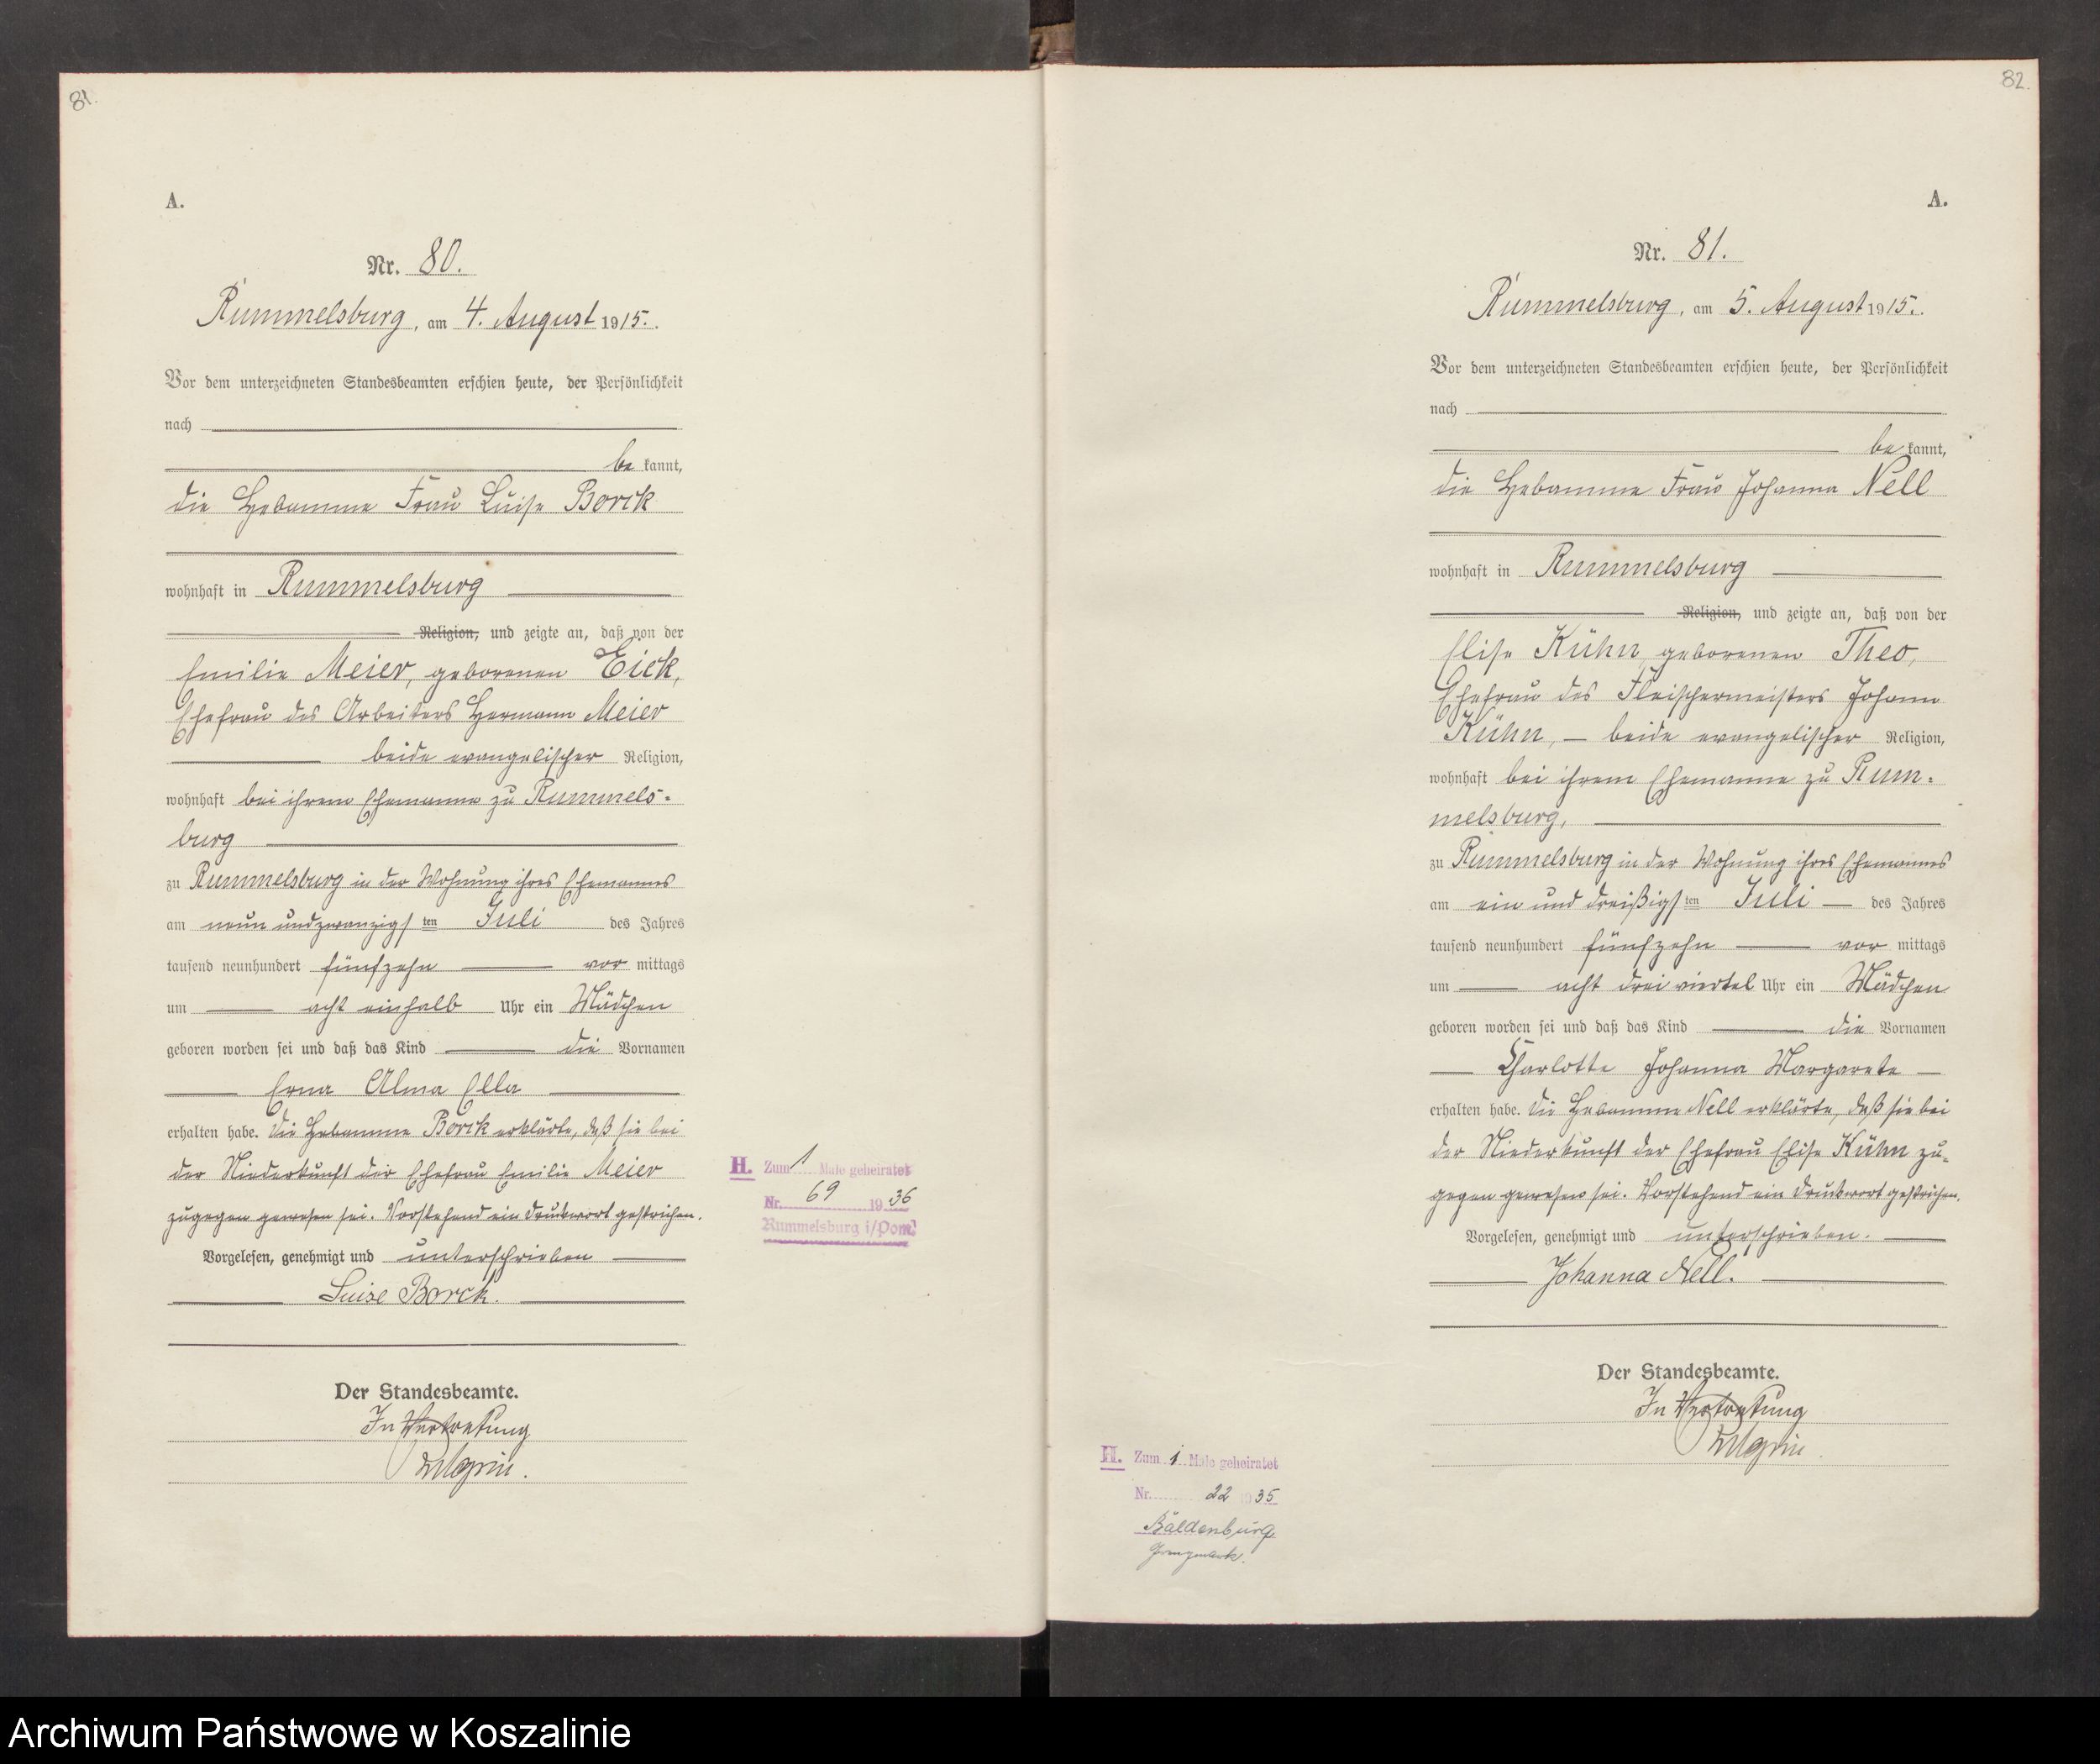 81.
A.
Nr. 80.
Rummelsburg, am 4. August 1915.
Vor dem unterzeichneten Standesbeamten erschien heute, der Persönlichkeit
nach
be kannt,
die Hebamme Frau Luise Borck
wohnhaft in Rummelsburg
Religion, und zeigte an, daß von der
Emilie Meier, geborenen Eick,
Ehefrau des Arbeiters Hermann Meier
beide evangelischer Religion,
wohnhaft bei ihrem Ehemanne zu Rummels-
burg
zu Rummelsburg in der Wohnung ihres Ehemannes
am neun und zwanzigsten Juli des Jahres
tausend neunhundert fünfzehn vor mittags
um acht einhalb Uhr ein Mädchen
geboren worden sei und daß das Kind die Vornamen
Erna Alma Ella
erhalten habe. Die Hebamme Borck erklärte, daß sie bei
der Niederkunft der Ehefrau Emilie Meier
zugegen gewesen sei. Vorstehend ein Druckwort gestrichen.
Vorgelesen, genehmigt und unterschrieben
Luise Borck.
Der Standesbeamte.
In Vertretung
H. Zum 1 Male geheiratet
Nr. 69 1936
Rummelsburg i/Pom.
82.
A.
Nr. 81.
Rummelsburg, am 5. August 1915.
Vor dem unterzeichneten Standesbeamten erschien heute, der Persönlichkeit
nach
be kannt,
die Hebamme Frau Johanna Nell
wohnhaft in Rummelsburg
Religion, und zeigte an, daß von der
Elise Kühn, geborenen Theo,
Ehefrau des Fleischermeisters Johann
Kühn, – beide evangelischer Religion,
wohnhaft bei ihrem Ehemanne zu Rum-
melsburg,
zu Rummelsburg in der Wohnung ihres Ehemannes
am ein und dreißigsten Juli des Jahres
tausend neunhundert fünfzehn vor mittags
um acht drei viertel Uhr ein Mädchen
geboren worden sei und daß das Kind die Vornamen
Charlotte Johanna Margarete
erhalten habe. Die Hebamme Nell erklärte, daß sie bei
der Niederkunft der Ehefrau Elise Kühn zu-
gegen gewesen sei. Vorstehend ein Druckwort gestrichen.
Vorgelesen, genehmigt und unterschrieben.
Johanna Nell.
Der Standesbeamte.
In Vertretung
H. Zum 1 Male geheiratet
Nr. 22 1935
Baldenburg
Grenzmark.
Archiwum Państwowe w Koszalinie